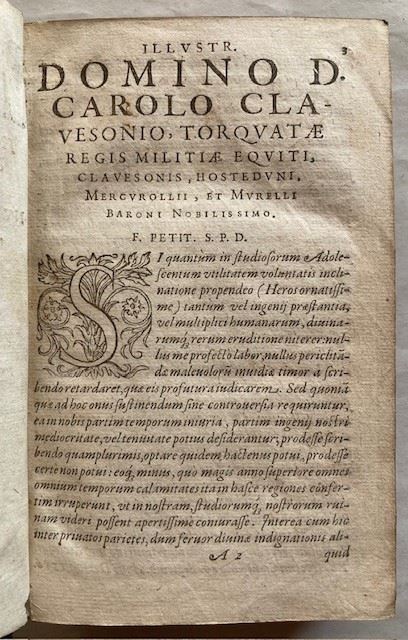 ILLVSTR.
3
DOMINO D.
CAROLO CLA-
VESONIO, TORQVATÆ
REGIS MILITIÆ EQVITI,
CLAVESONIS, HOSTEDVNI,
MERCVROLLII, ET MVRELLI
BARONI NOBILISSIMO.
F. PETIT. S. P. D.
SI quantùm in studiosorum Adole-
scentum vtilitatem voluntatis incli-
natione propendeo (Heros ornatissi-
me) tantum vel ingenij præstantia,
vel multiplici humanarum, diuina-
rumq́; rerum eruditione niterer: nul-
lus me profectò labor, nullus periclitã-
dæ maleuolorũ inuidiæ timor a scri-
bendo retardaret, quæ eis profutura iudicarem. Sed quonia
quæ ad hoc onus sustinendum sine controuersia requiruntur,
ea in nobis partim temporum iniuria, partim ingenij nostri
mediocritate, vel tenuitate potius desiderantur; prodesse scri-
bendo quamplurimis, optare quidem hactenus potui, prodesse
certe non potui: eoq́; minus, quo magis anno superiore omnes
omnium temporum calamitates ita in hasce regiones confer-
tim irruperunt, vt in nostram, studiorumq́; nostrorum rui-
nam videri possent apertissime coniurasse. Interea cum hic
inter priuatos parietes, dum feruor diuinæ indignationis ali-
A 2
quid